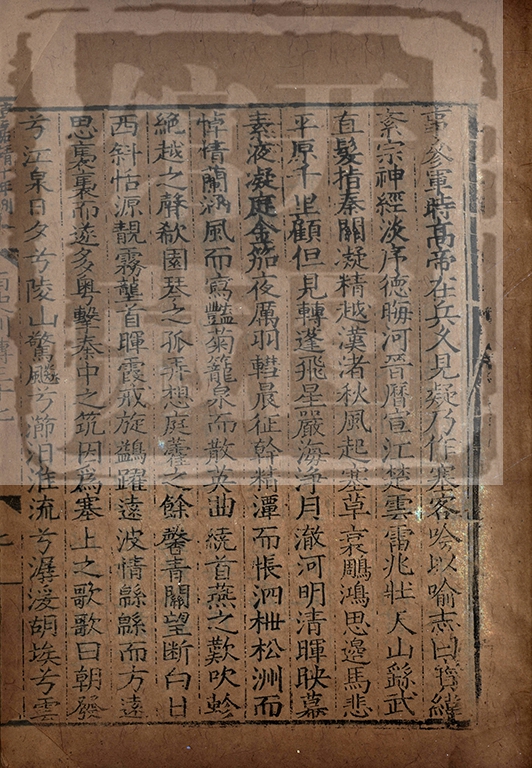 事參軍時高帝在兵久見疑乃作塞客吟以喻志曰寶緯
紊宗神經淡序德晦河晉曆宣江楚雲雷兆壯天山繇武
直髮指秦關凝精越漢渚秋風起塞草衰鵰鴻思邊馬悲
平原千里顧但見轉蓬飛星嚴海淨月澈河明清暉映幕
素液凝庭金笳夜厲羽轊晨征幹精潭而悵泗枻松洲而
悼情蘭涵風而寫豔菊籠泉而散英曲繞首燕之歎吹軫
絶越之聲欷園琴之孤弄想庭藿之餘馨青關望斷白日
西斜恬源靚霧壟首暉霞戒旋鷁躍遠波情緜緜而方遠
思裊裊而遂多粤擊秦中之筑因爲塞上之歌歌曰朝發
兮江泉日夕兮陵山驚飇兮瀄汨淮流兮潺湲胡埃兮雲